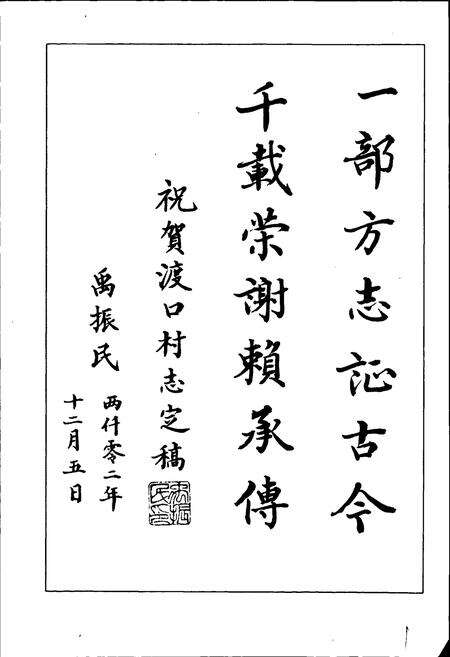 一部方志证古今
千載荣謝賴承傳
祝賀渡口村志定稿
禹振民
两仟零二年
十二月五日